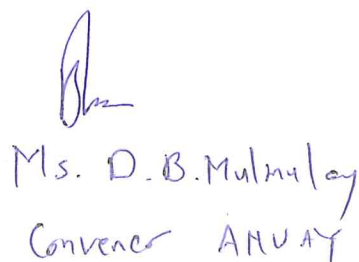 Ms. D.B. Mulmulay
Convener ANVAY